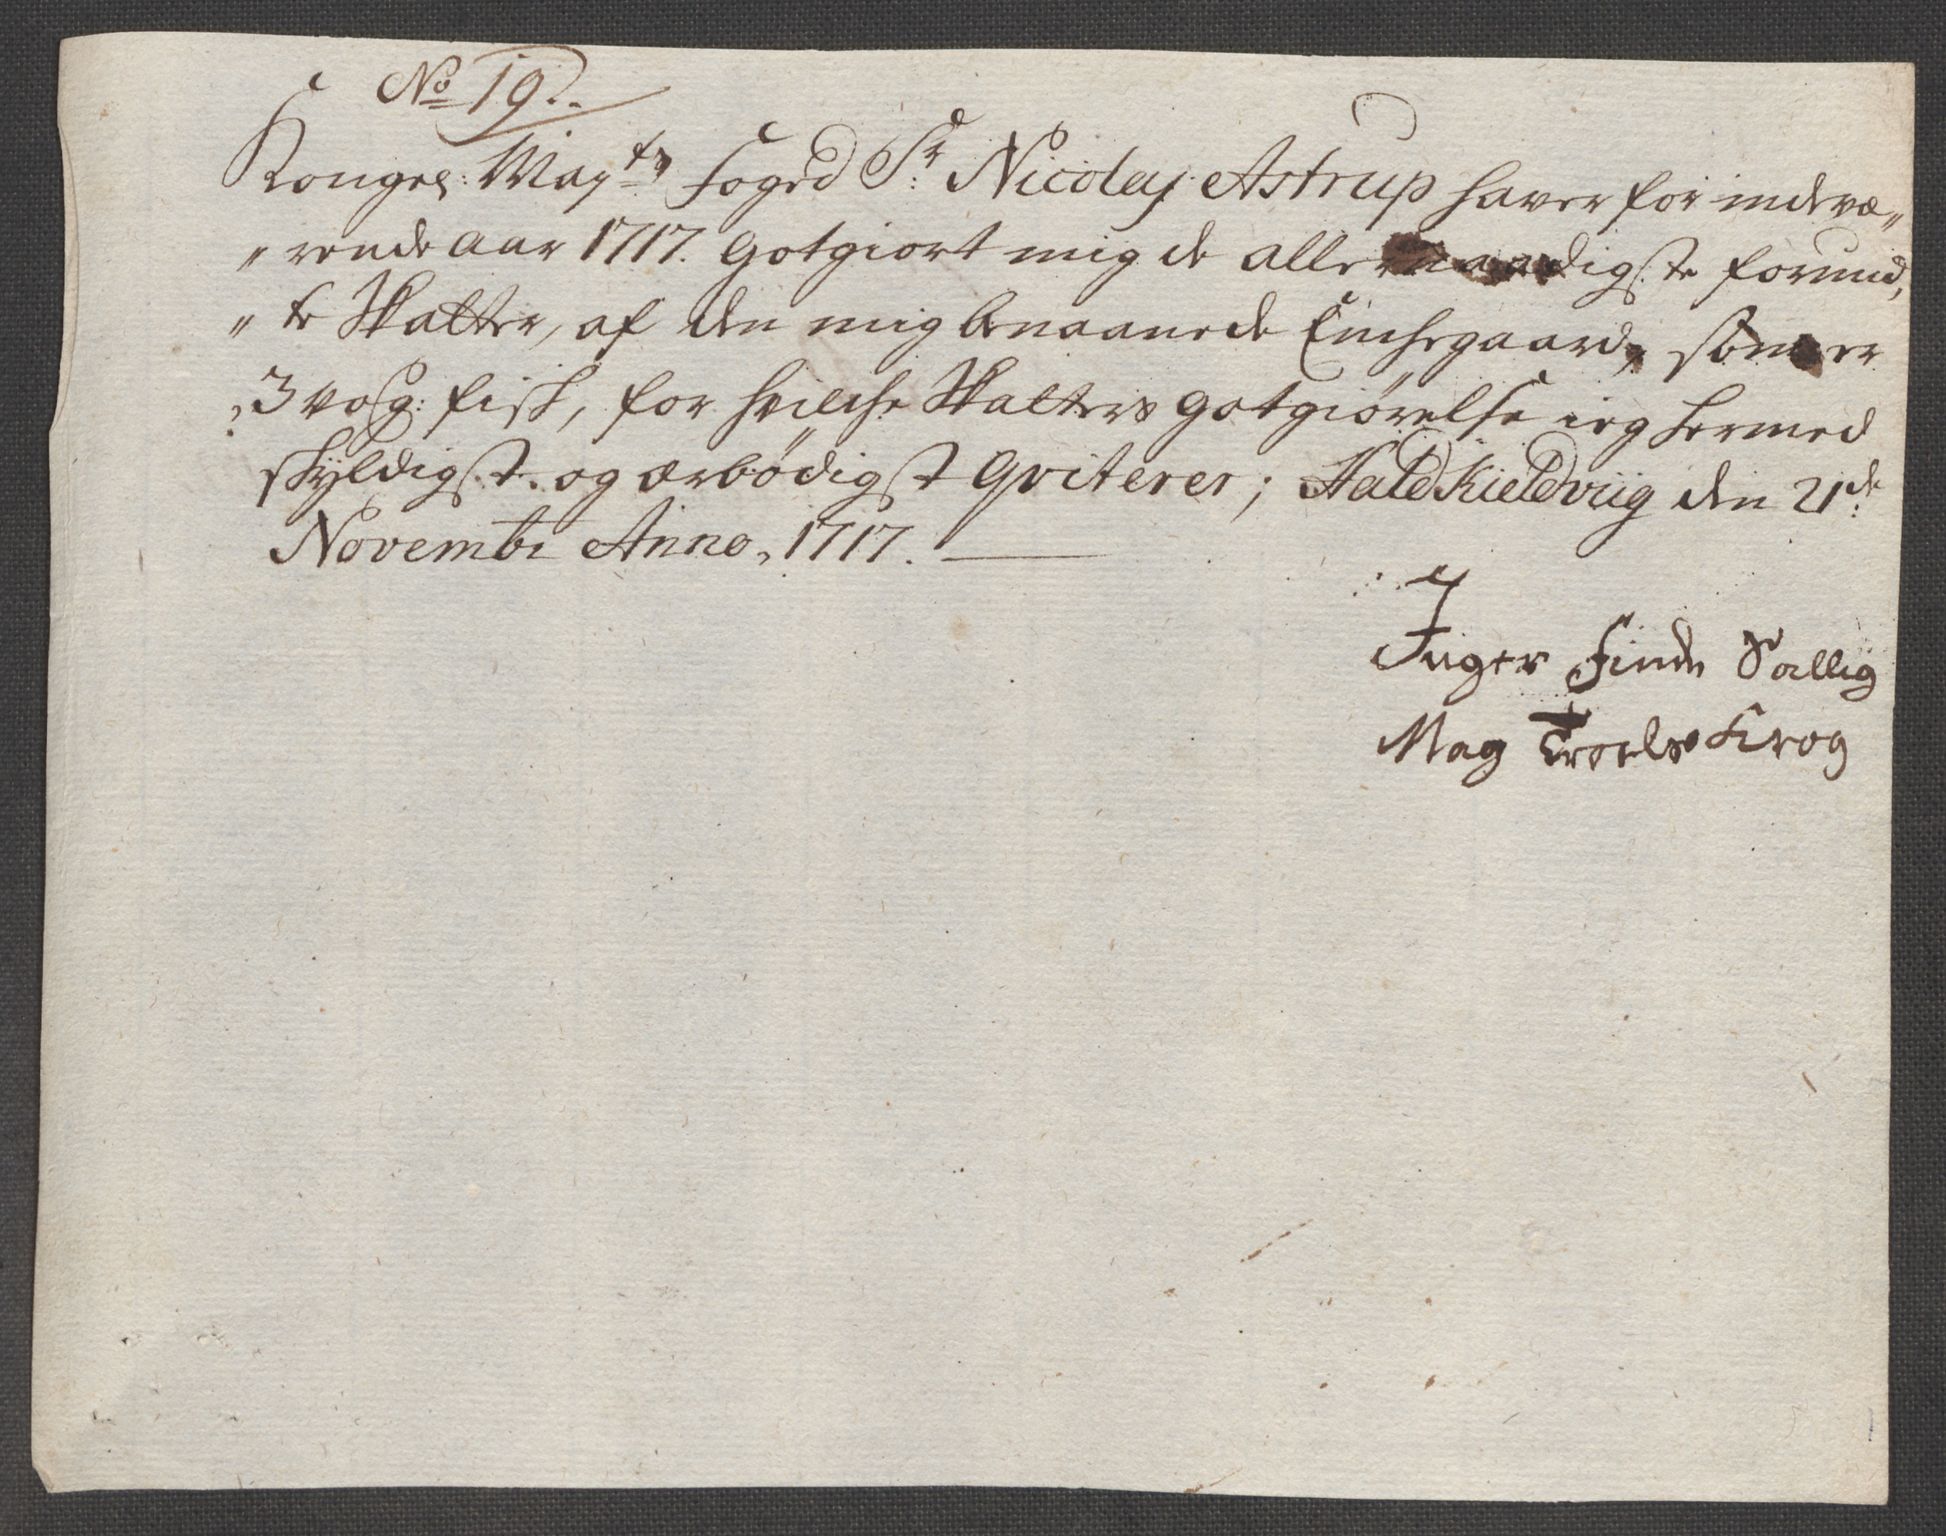 No 19.
Kongel: May.ts Foged Sr. Nicolaj Astrup haver for indevæ„
„rende Aar 1717. Gotgiort mig de allernaadigste forund„
„te Skatter, af den mig benaanede Enchegaard, som er
3 vog: fisk, for hvilche Skatters gotgiørelse ieg hermed
skyldigst og ærbødigst Qviterer; Hald Kieldviig den 21de
Novembr Anno, 1717.
Inger Finde Sallig
Mag Troels Krog